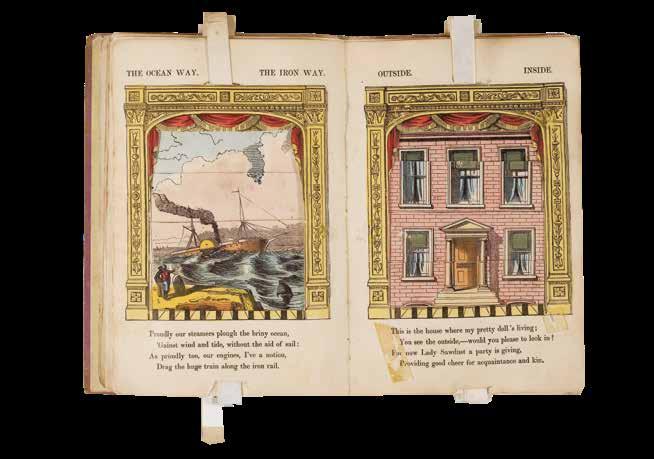 THE OCEAN WAY. THE IRON WAY.
Proudly our steamers plough the briny ocean,
'Gainst wind and tide, without the aid of sail:
As proudly too, our engines, I've a notion,
Drag the huge train along the iron rail.
OUTSIDE. INSIDE.
This is the house where my pretty doll's living;
You see the outside,—would you please to look in!
For now Lady Sawdust a party is giving,
Providing good cheer for acquaintance and kin.